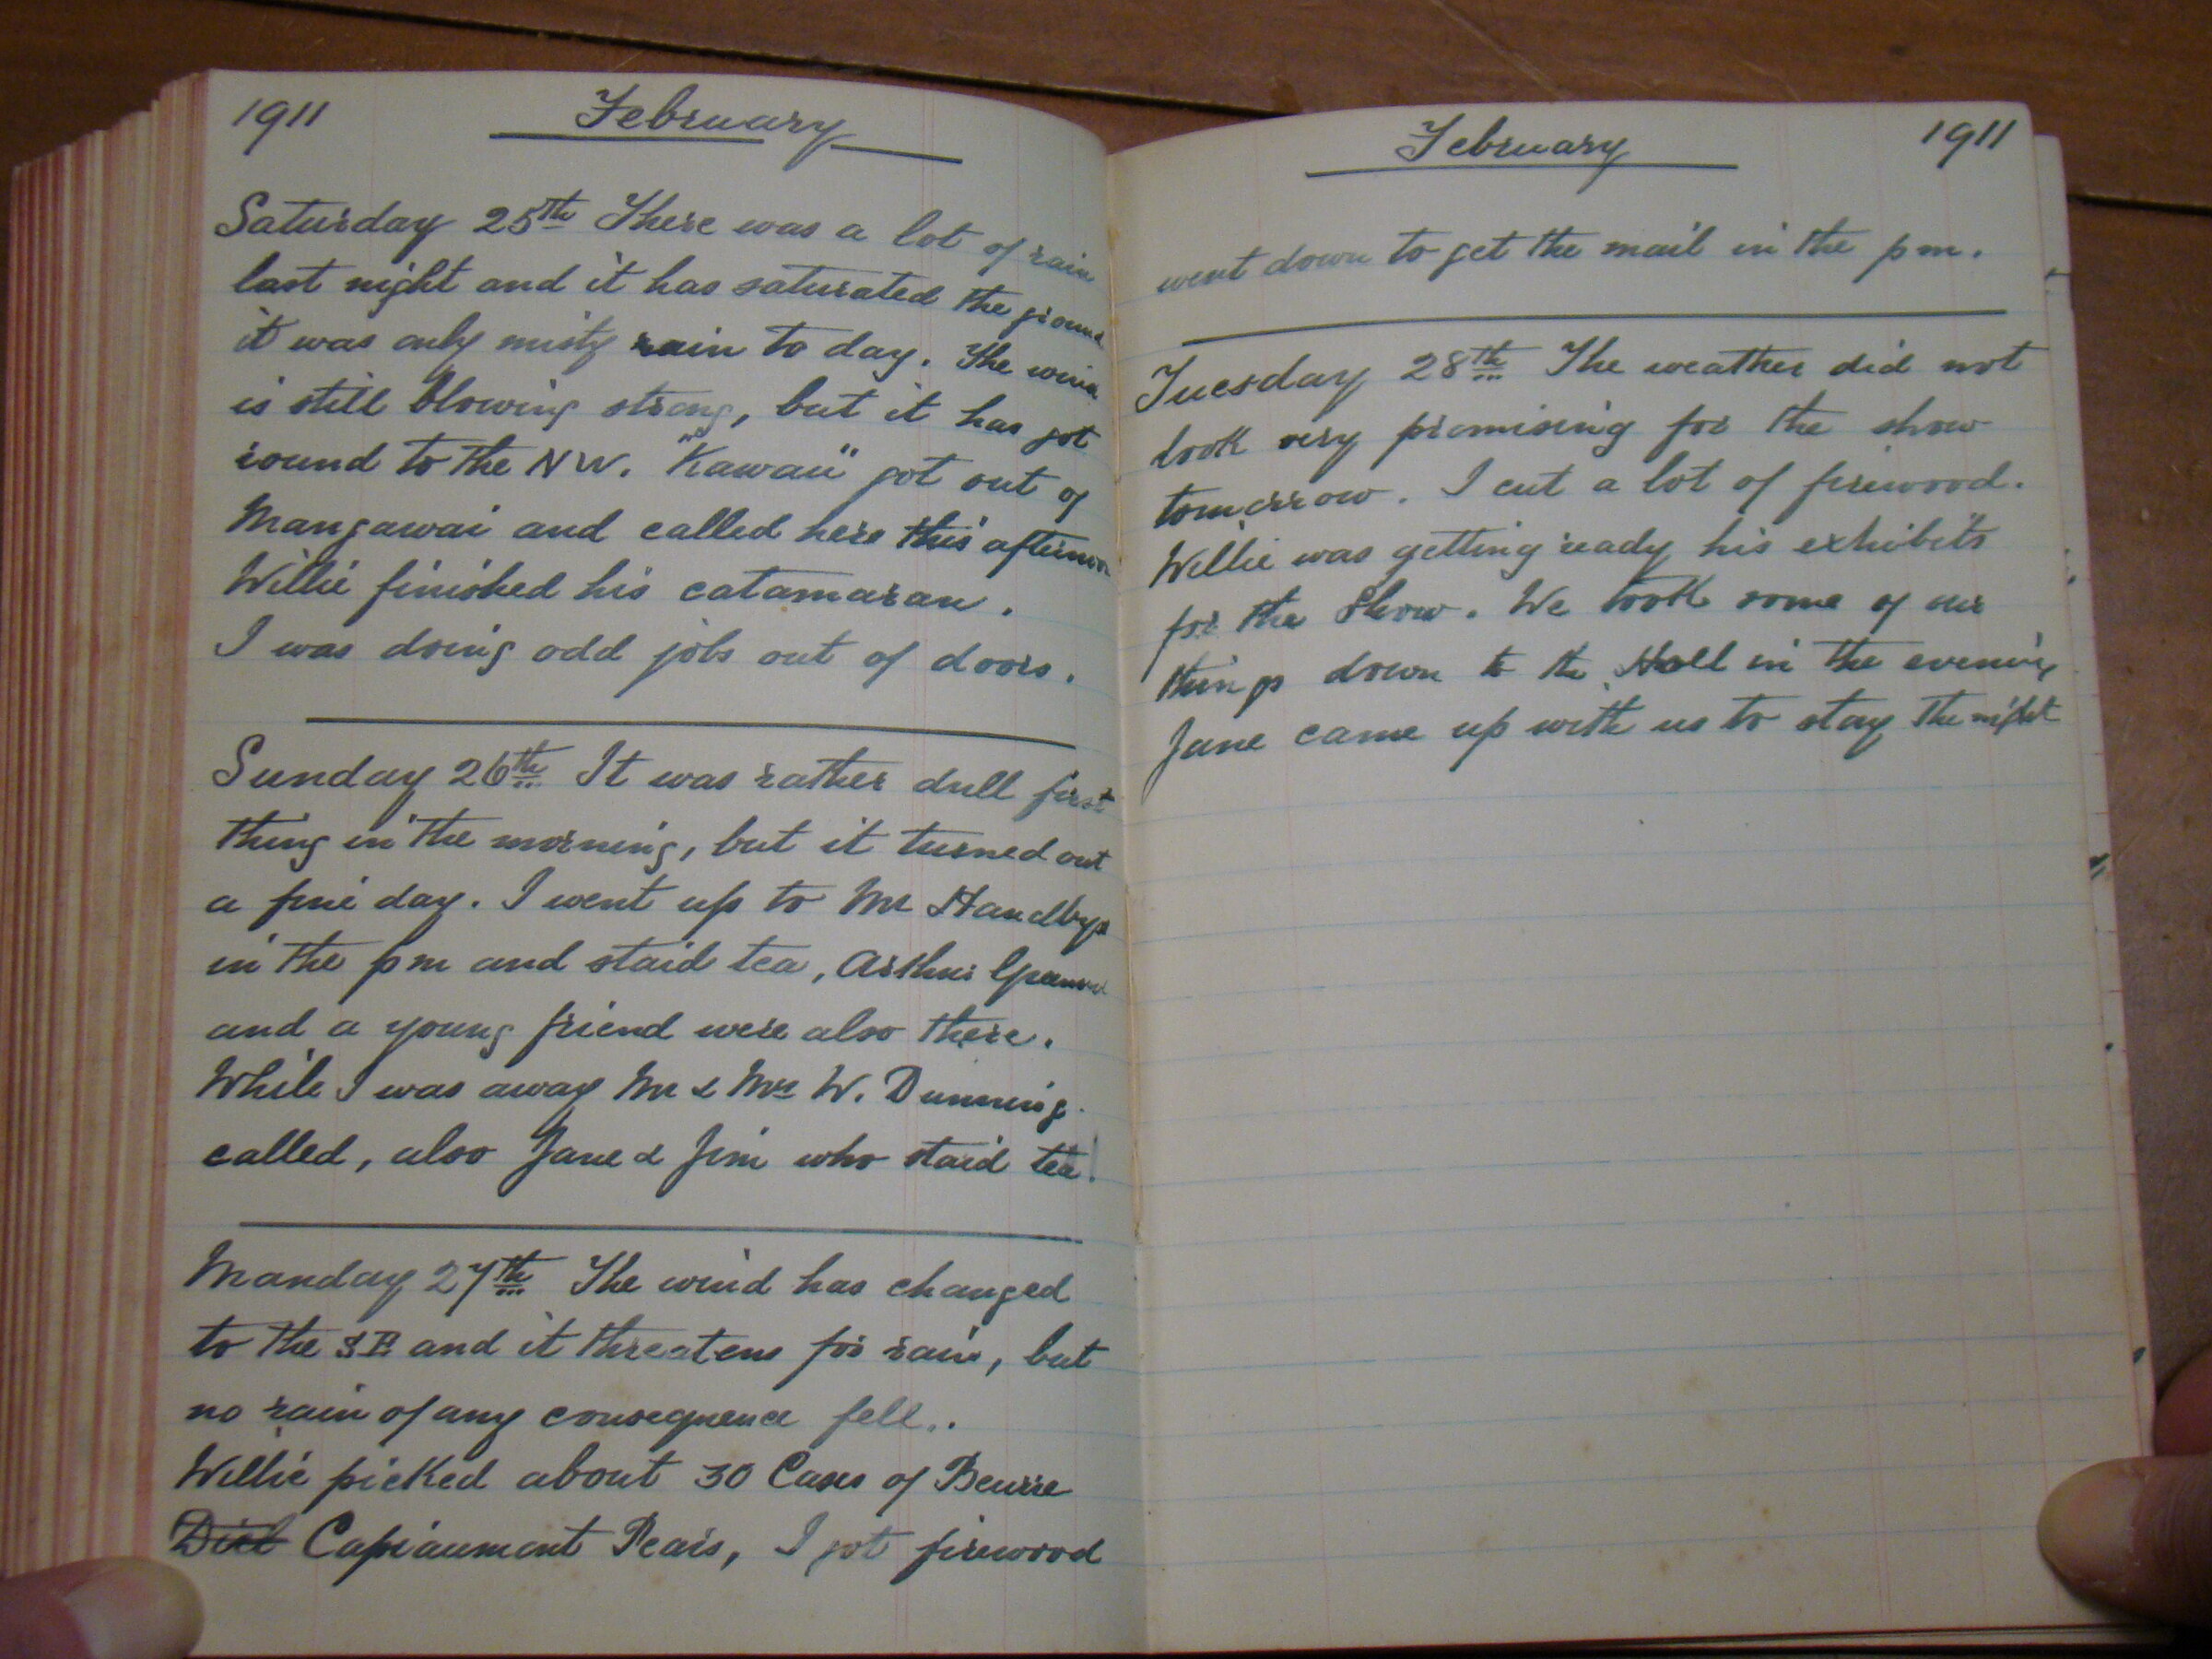 1911 February
Saturday 25th There was a lot of rain
last night and it has saturated the ground
it was only misty rain to day. The wind
is still blowing strong, but it has got
round to the NW. "Kawau" got out of
Mangawai and called here this afternoon
Willie finished his catamaran.
I was doing odd jobs out of doors.
Sunday 26th It was rather dull first
thing in the morning, but it turned out
a fine day. I went up to Mr
in the pm and staid tea, Arthur
and a young friend were also there.
While I was away Mr & Mrs W. Dunning
called, also Jane & Jim who staid tea.
Monday 27th The wind has changed
to the SE and it threatens for rain, but
no rain of any consequence fell..
Willie picked about 30 Cases of Beurre
Diel Capiaumont Pears, I got firewood
February 1911
went down to get the mail in the pm.
Tuesday 28th The weather did not
look very promising for the show
tomorrow. I cut a lot of firewood.
Willie was getting ready his exhibits
for the Show. We took some of our
things down to the Hall in the evening
Jane came up with us to stay the night